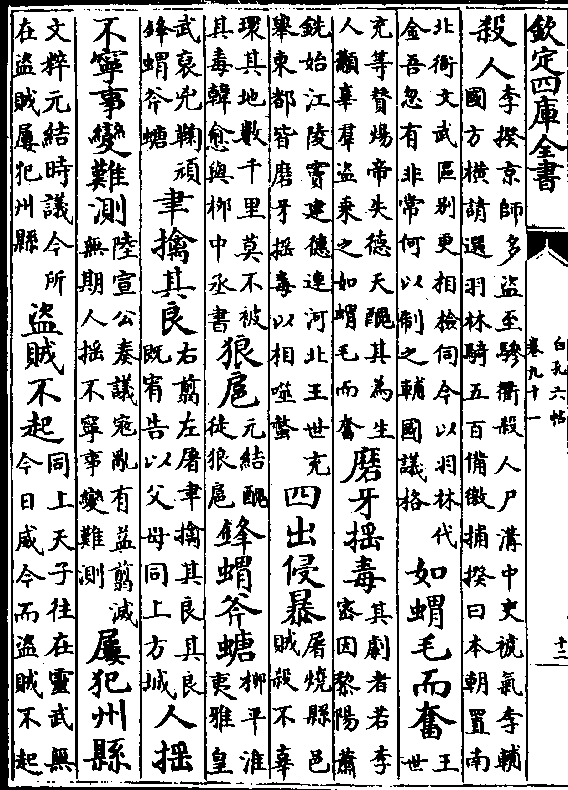 欽定四庫全書
白孔六帖
卷九十一
十二
殺人
李揆京師多盜至驂衢殺人尸溝中吏褫氣李輔
國方橫請選羽林騎五百備徼捕揆曰本朝置南
北衙文武區别更相檢伺今以羽林代
金吾忽有非常何以制之輔國議格
如蝟毛而奮
王
世
充等賛煬帝失德天醜其為生
人顓辜羣盜乗之如蝟毛而奮
磨牙揺毒
其劇者若李
密因黎陽蕭
銑始江陵竇建德連河北王世充
舉東都皆磨牙揺毒以相噬螫
四出侵暴
屠燒縣邑
賊殺不辜
環其地數千里莫不被
其毒韓愈與柳中丞書
狼扈
元結醜
徒狼扈
鋒蝟斧螗
柳平淮
夷雅皇
武哀兇鞠頑
鋒蝟斧螗
聿擒其良
右翦左屠聿擒其良其良
既宥告以父母同上方城
人揺
不寧事變難測
陸宣公奏議寇亂有益翦滅
無期人揺不寧事變難測
屢犯州縣
文粹元結時議今所
在盜賊屢犯州縣
盜賊不起
同上天子往在靈武無
今日威令而盜賊不起